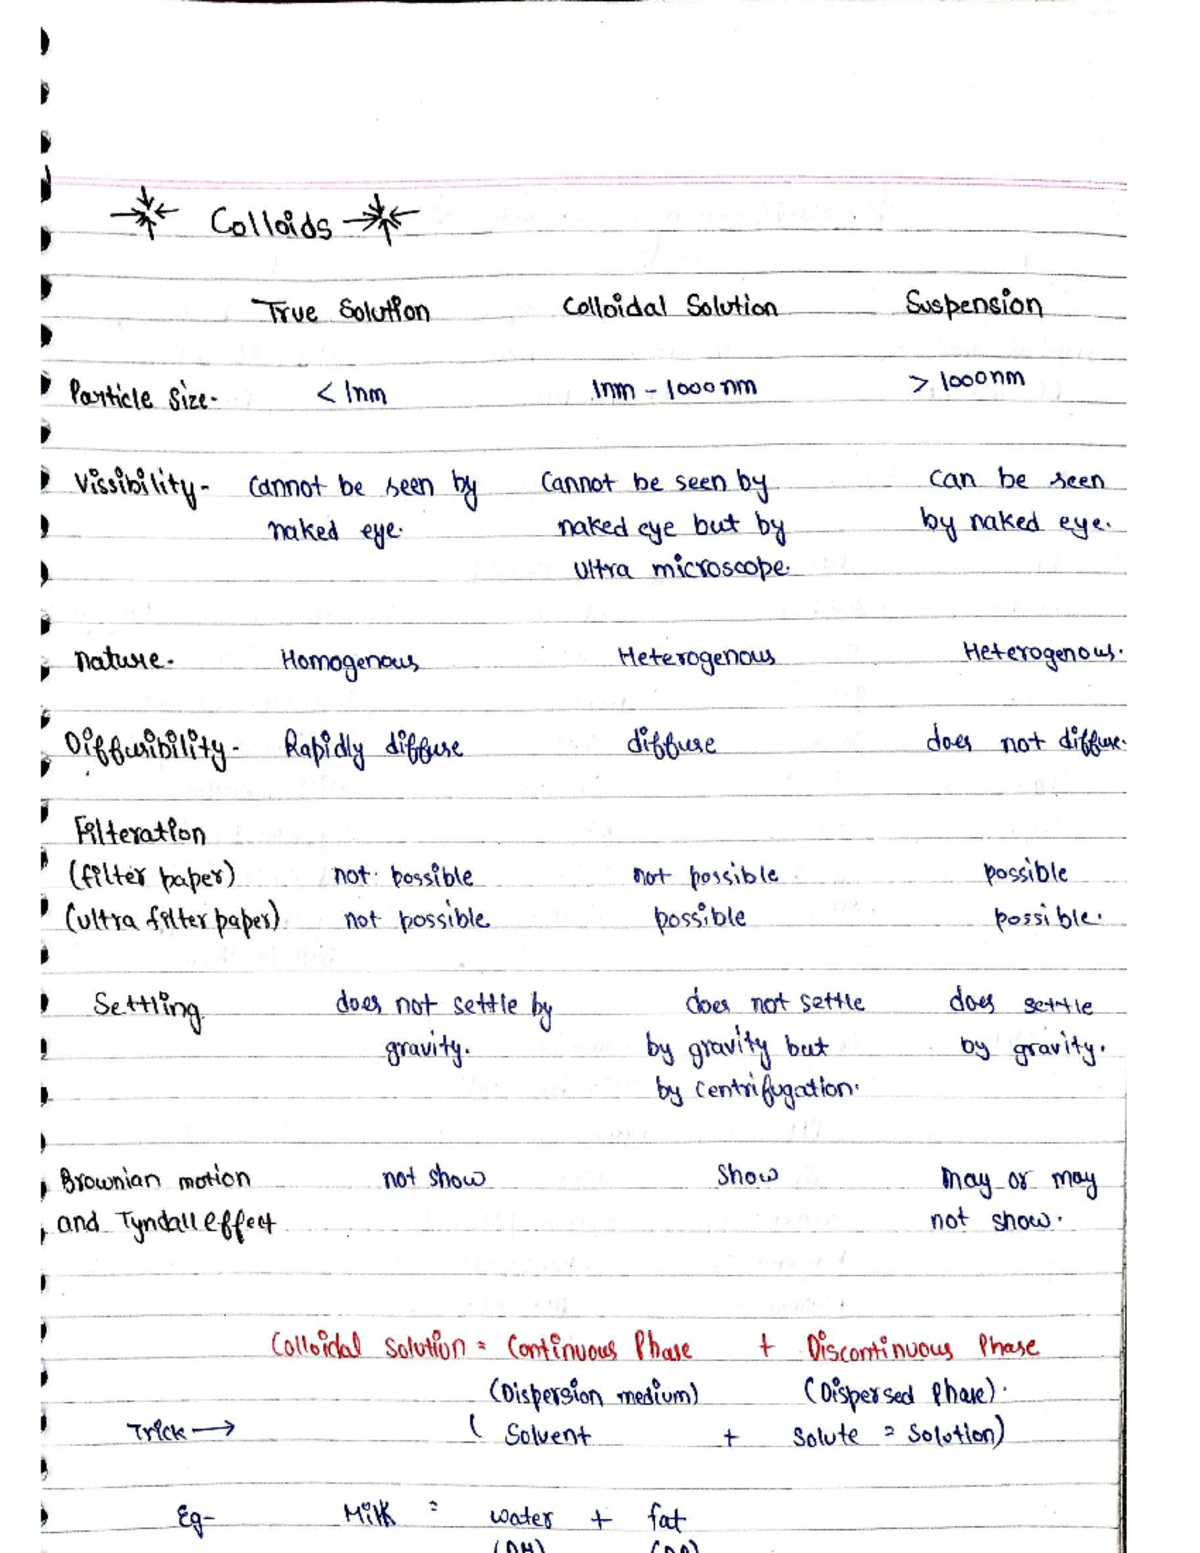 Colloids
True Solution Colloidal Solution Suspension
Particle Size- < 1nm 1nm - 1000nm > 1000nm
Vissibility- Cannot be seen by Cannot be seen by can be seen
naked eye. naked eye but by by naked eye.
ultra microscope.
Nature- Homogenous Heterogenous Heterogenous.
Diffusibility- Rapidly diffuse diffuse does not diffuse.
Filteration
(filter paper) not possible not possible possible
(ultra filter paper) not possible possible possible.
Settling does not settle by does not settle does settle
gravity. by gravity but by gravity.
by centrifugation.
Brownian motion not show Show may or may
and Tyndall effect not show.
Colloidal Solution = Continuous Phase + Discontinuous Phase
(Dispersion medium) (Dispersed Phase).
Trick → ( Solvent + Solute = Solution)
Eg- Milk = water + fat